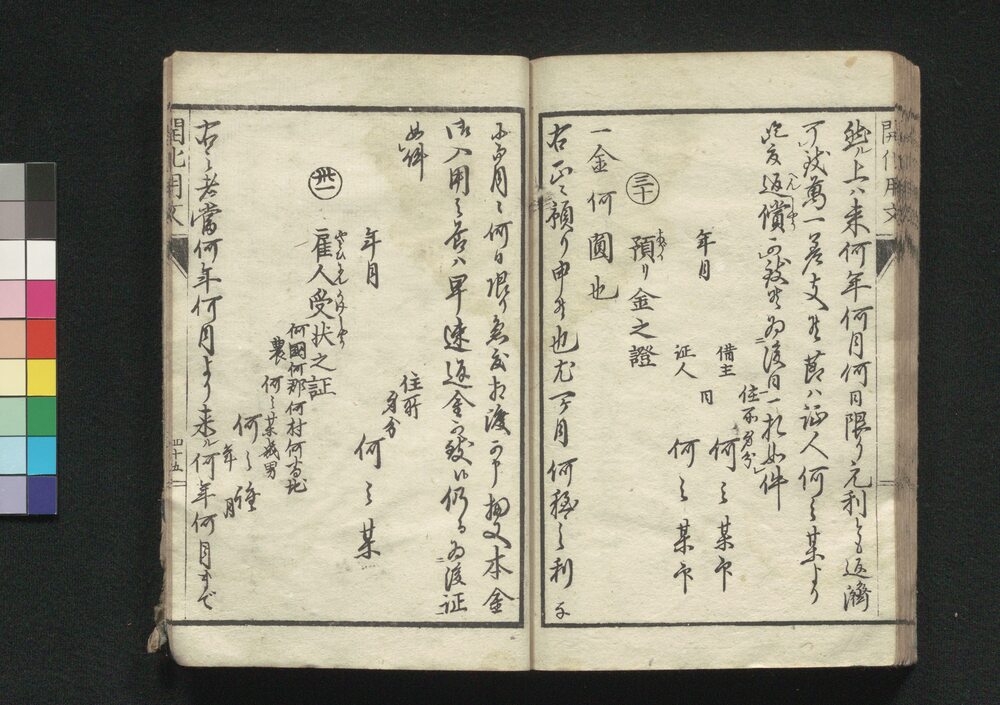 開化用文
然ル上ハ来何年何月何日限り元利とも返済
可致萬一差支候節ハ証人何之某より
急度返償可致候為後日一札如件
へんしやう
住所身分
年月 借主 何之某印
証人 同 何之某印
三十 預り金之證
あづかり
一金何圓也
右正ニ預り申候也尤一ヶ月何程之利子
毎月何日限り急度相渡可申扨又本金
御入用之節ハ早速返金可致候仍而為後証
如件
住所
身分
年月 何之某
卅一 雇人受状之証
何國何郡何村何番地
農 何之某幾男
何之誰
年 月
右之者當何年何月より来ル何年何月まで
開化用文
四十五